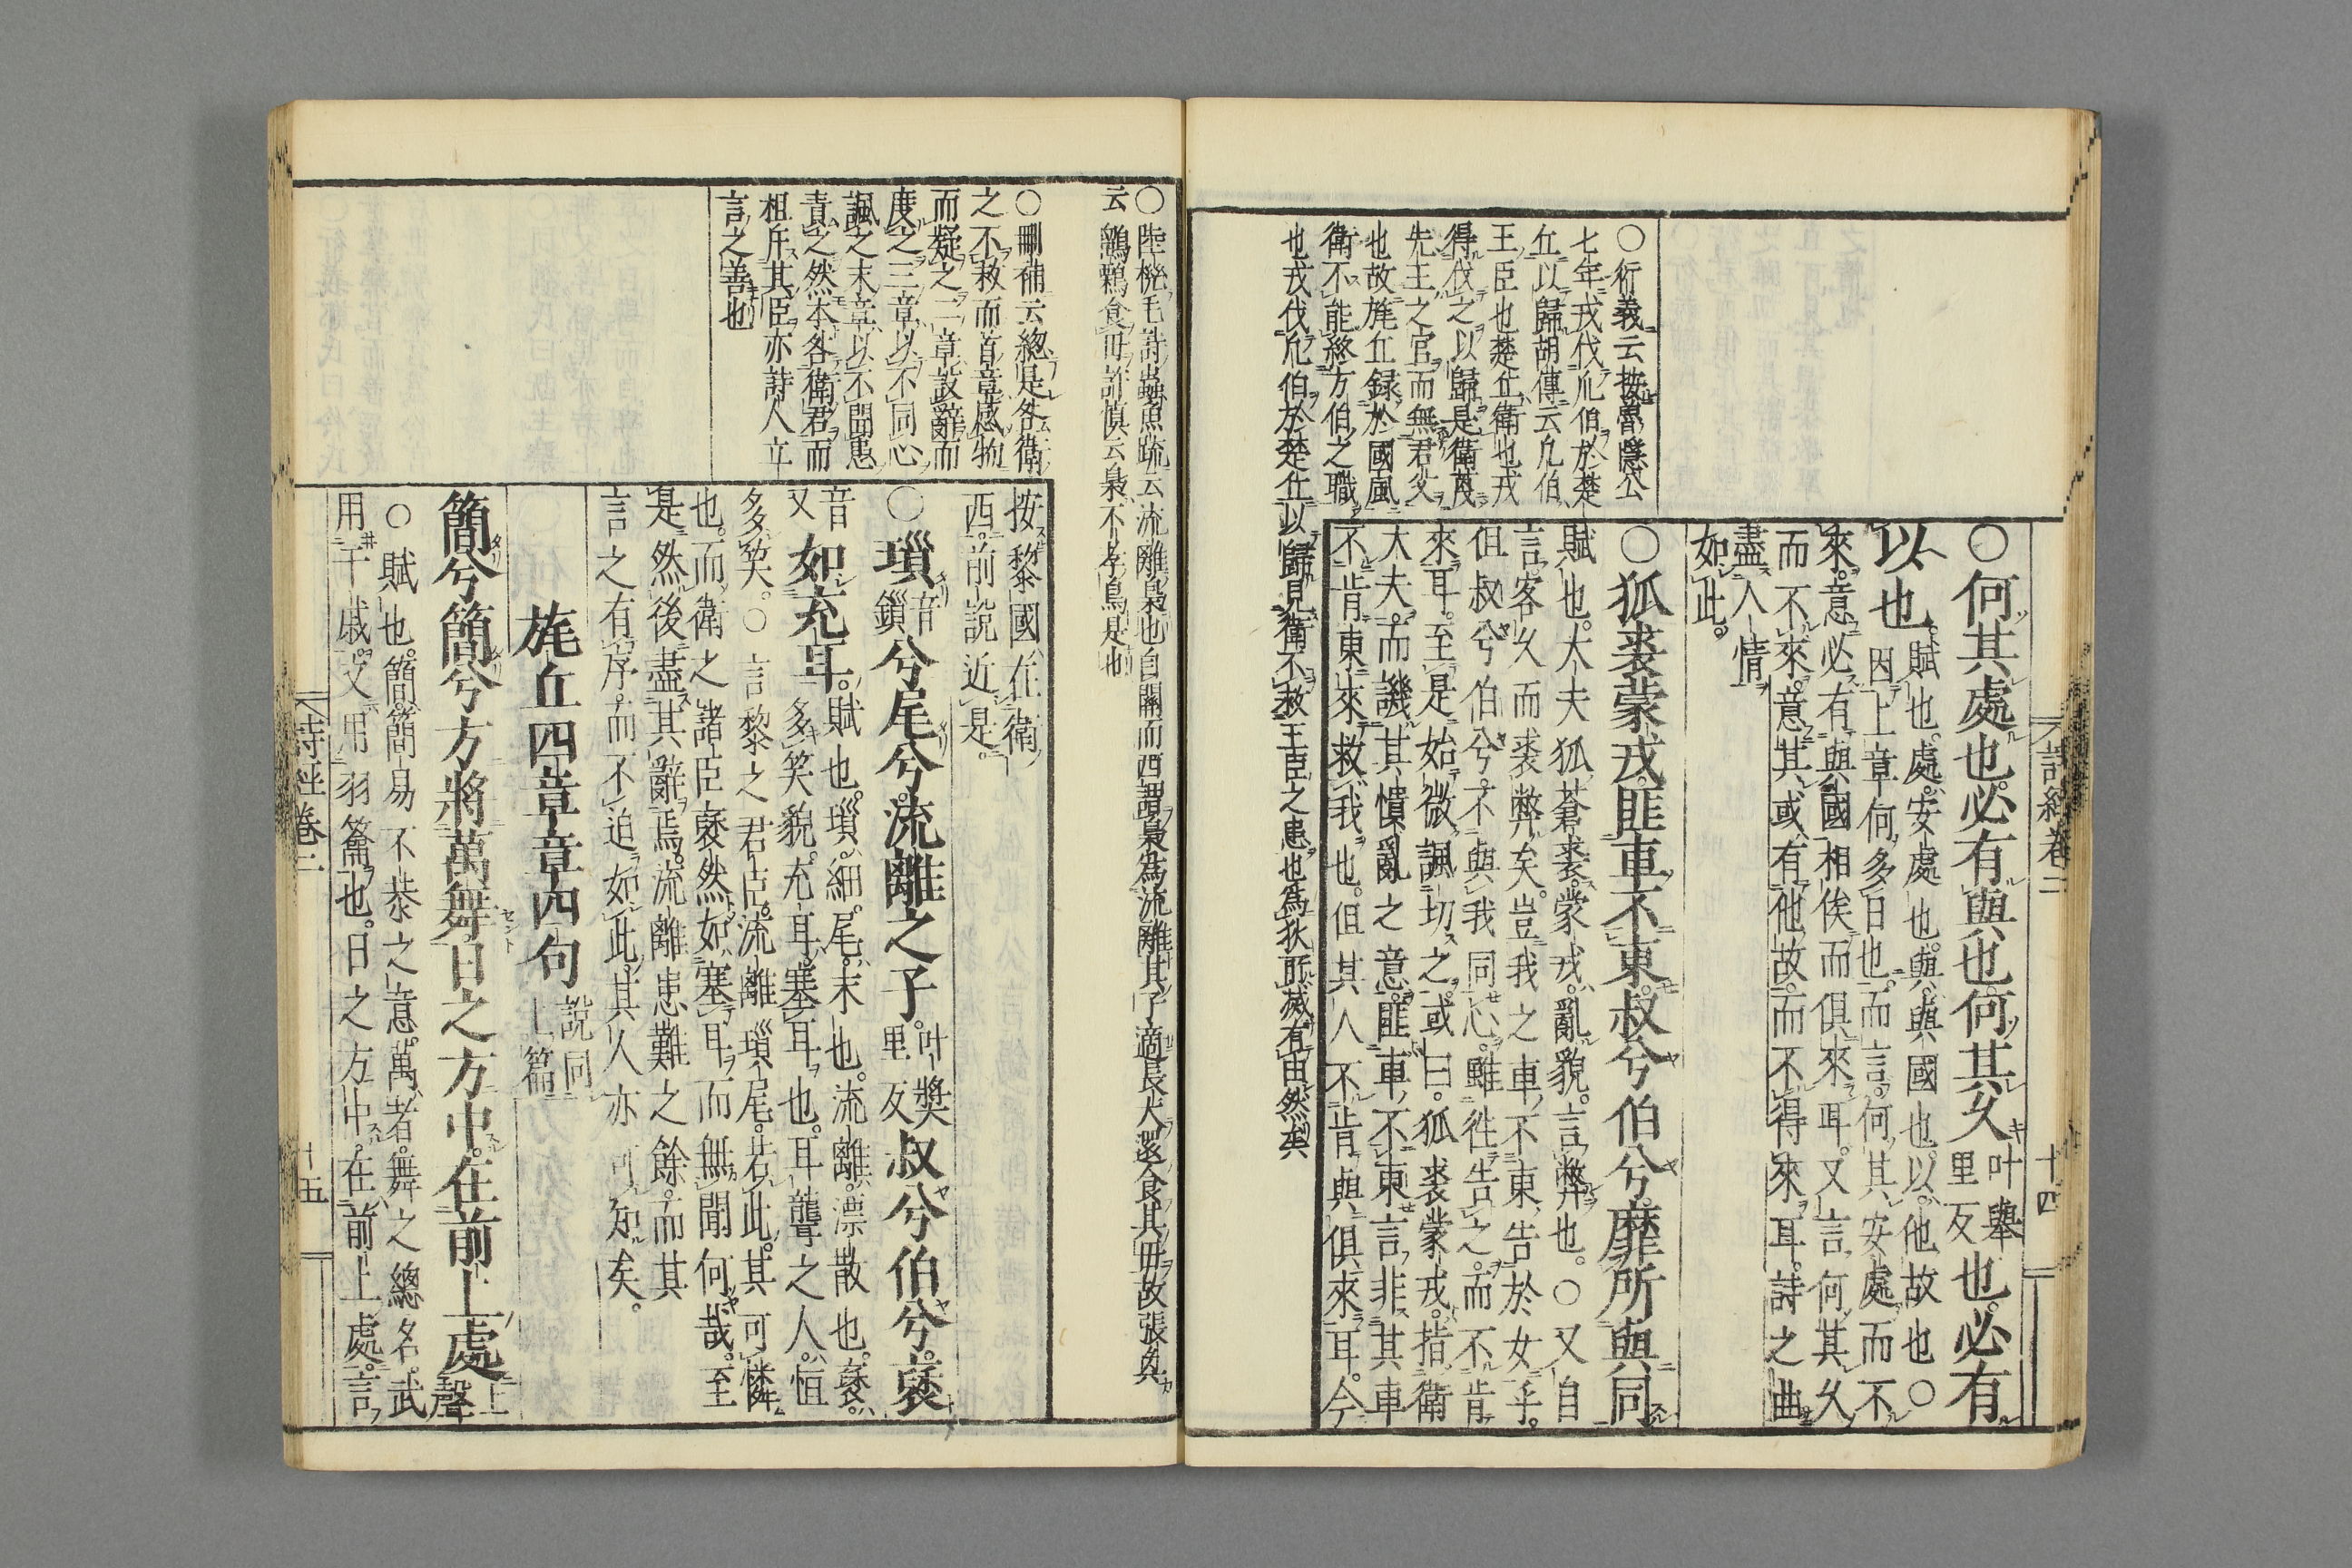 詩經卷二
十四
○何其處也必有與也何其久叶舉里反也必有
以也賦也。處。安處也。與。與國也。以。他故也○
因上章何多日也。而言。何其安處而不
來。意必有與國相俟而俱來耳。又言何其久
而不來。意其或有他故。而不得來耳。詩之曲
盡人情
如此。
○狐裘蒙戎匪車不東叔兮伯兮靡所與同
賦也。大夫狐蒼裘。蒙戎。亂貌。言弊也。○又自
言客久而裘弊矣。豈我之車不東告於女乎。
但叔兮伯兮。不與我同心。雖往告之。而不肯
來耳。至是始微諷切之。或曰。狐裘蒙戎。指衛
大夫。而譏其憒亂之意。匪車不東言非其車
不肯東來救我也。但其人不肯與俱來耳。今
○衍義云按魯隱公
七年戎伐凡伯於楚
丘以歸胡傳云凡伯
王臣也楚丘衛也戎
得伐之以歸是衛蔑
先王之官而無君父
也故旄丘録於國風
衛不能終方伯之職
也戎伐凡伯於楚丘以歸見衛不救王臣之患也爲狄所滅有由然矣
○陸機毛詩蟲魚疏云流離梟也自關而西謂梟爲流離其子適長大還食其母故張奐
云鶹鷅食母許慎云梟不孝鳥是也
按黎國在衛
西。前說近是。
○瑣音鎖兮尾兮流離之子叶獎里反叔兮伯兮褎
音又如充耳賦也。瑣。細。尾。末也。流離。漂散也。褎。
多笑貌。充耳。塞耳也。耳聾之人。恒
多笑。○言黎之君臣。流離瑣尾。若此。其可憐
也。而衛之諸臣褎然如塞耳而無聞何哉。至
是然後盡其辭焉。流離患難之餘。而其
言之有序。而不迫如此。其人亦可知矣。
旄丘四章章四句說同上篇
簡兮簡兮方將萬舞日之方中在前上處上聲
○賦也。簡。簡易不恭之意。萬者。舞之總名。武
用干戚。文用羽籥也。日之方中。在前上處。言
○刪補云總是咎衛
之不救而首章感物
而疑之二章設辭而
度之三章以不同心
諷之末章以不聞患
責之然本咎衛君而
相斥其臣亦詩人立
言之善也
詩經卷二
十五